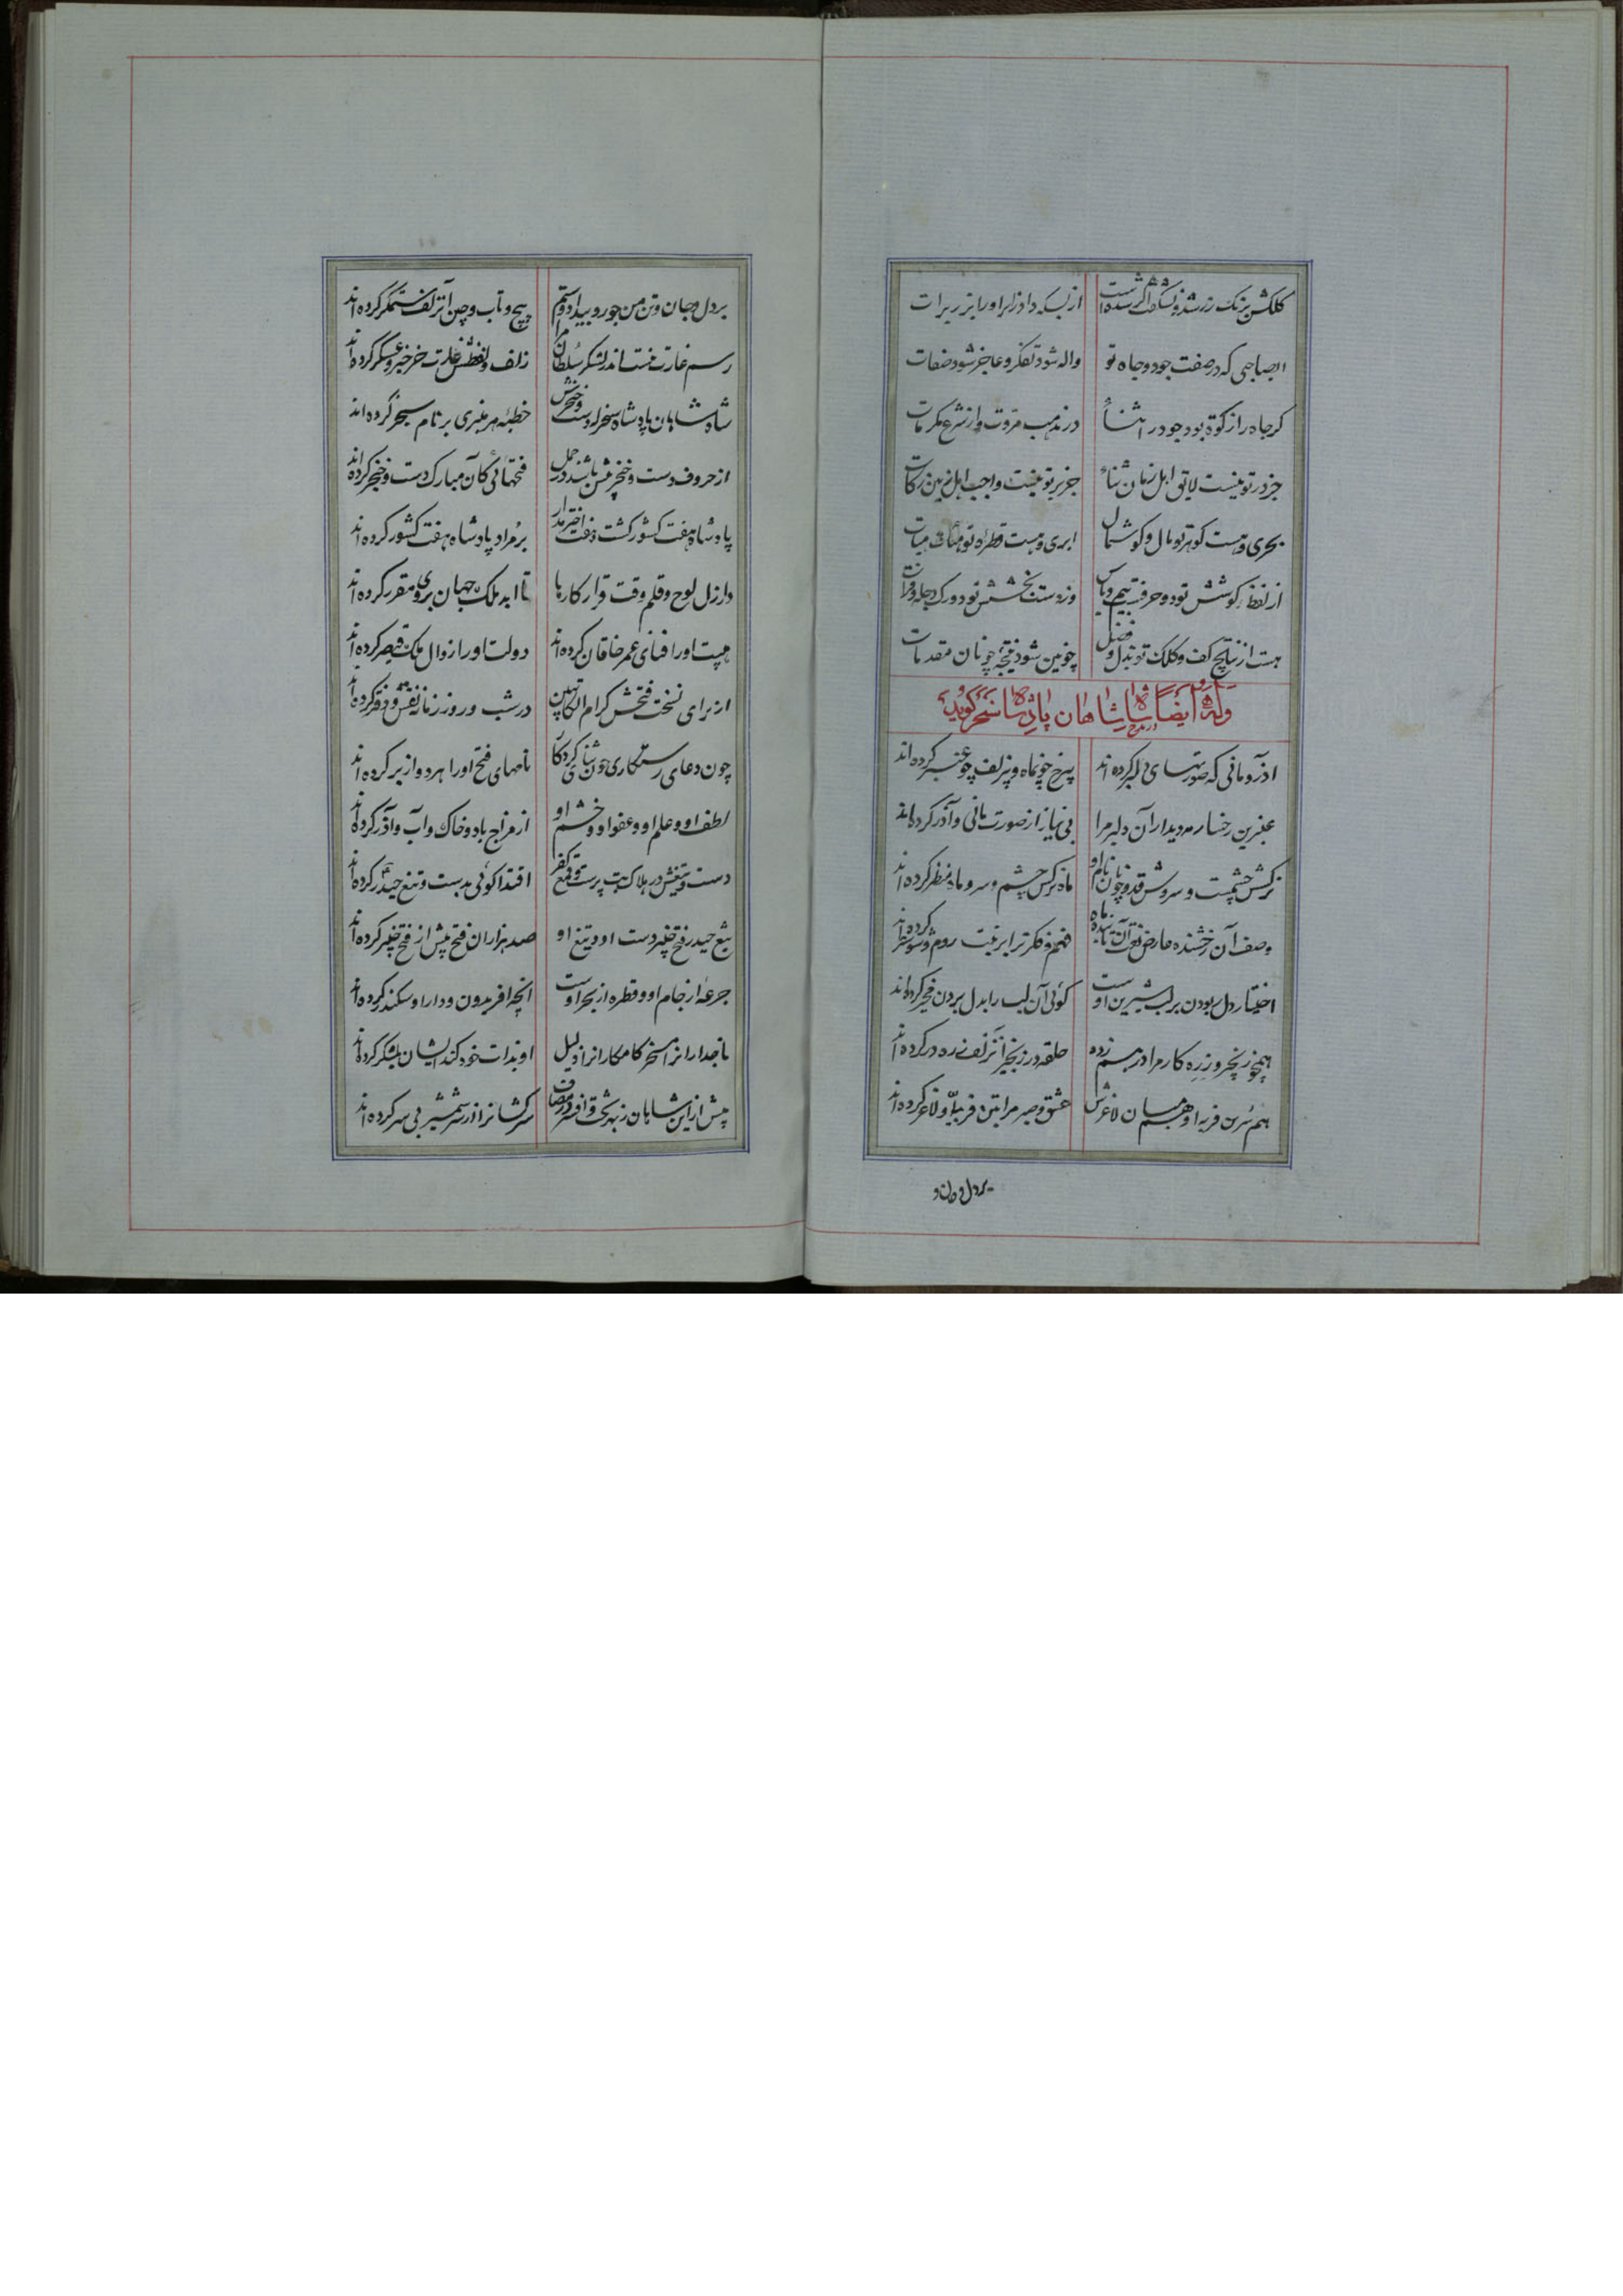 کلکش برنک زر شد و نشکفت اگر شدست از بسکه داد زایر او را بزر برات
ای صاحبی که در صفت جود و جاه تو واله شود تفکر و عاجز شود صفات
کر جاه را زکوة بود جود در اثنا در مذهب مروت و از شرع مکرمات
جز در تو نیست لایق اهل زمان ثناء جز بر تو نیست واجب اهل زمین زکات
بحری و هست کوهر تو مال و کوشمال ابری و هست قطره تو
از لفظ کوشش تو دو حرفست بیم و باس وز دست بخشش تو دو رک دجله و فرات
هست از نتایج کف و کلک تو بذل و فضل چونین شود نتیجه چونان مقدمات
وله ایضاً در مدح شاه شاهان پادشا سنجر کوید
آذر و مانی که صورتهای دلبر کرده اند برخ چو ماه و بزلف چو عنبر کرده اند
عنبرین رخسار مه دیدار آن دلبر مرا بی نیاز از صورت مانی و آذر کرده اند
نرکس چشمست و سروش قد و چون نام او ماه نرکس چشم و سرو ماه منظر کرده اند
وصف آن رخشنده عارض نعت آن تابنده ماه فهم و فکر ترا بر نیت روم و ششتر کرده اند
اختیار دل ربودن بر لب شیرین اوست کوئی آن لب را بدل بردن مخیر کرده اند
همچو زنجیر و زره کار مرا درهم زده حلقه در زنجیر آنزلف زره در کرده اند
هم سرین فربه او هم میان لاغرش عشق و صبر مرا بتن فربه و لاغر کرده اند
بر دل و جان و
بر دل و جان و تن من جور و بیداد و ستم پیچ و تاب و چین آنزلف ستمکر کرده اند
رسم غارت نیست اندر لشکر سلطان مرا زلف و لفظش غارت خرخیز و عسکر کرده اند
شاه شاهان پادشاه سنجر که از دست و خنجرش خطبه هر منبری بر نام سنجر کرده اند
از حروف دست و خنجر بیش باشند در جمل فتحهائی کان مبارک دست و خنجر کرده اند
پادشاه هفت کشور کشت و هفت اختر مدار بر مراد پادشاه هفت کشور کرده اند
در ازل لوح و قلم وقت قرار کارها تا ابد ملک جهان بروی مقرر کرده اند
هیبت او را فنای عمر خاقان کرده اند دولت او را زوال ملک قیصر کرده اند
از برای نسخت فتحش کرام الکاتبین در شب و روز زمانه نقش دفتر کرده اند
چون دعای رستکاری چون ثنای کردکار نامهای فتح او را هر دو از بر کرده اند
لطف او و علم او و عفو او و خشم او از مزاج باد و خاک و آب و آذر کرده اند
دست و تیغش در هلاک بت پرست و قمع کفر اقتدا کوئی بدست و تیغ حیدر کرده اند
تیغ حیدر فتح خیبر دست او و تیغ او صد هزاران فتح بیش از فتح خیبر کرده اند
جرعه از جام او و قطره از بحر اوست آنچه افریدون و دارا و سکندر کرده اند
تاجدارانرا مسخر کامکارانرا ذلیل او بذات خود کند ایشان بلشکر کرده اند
پیش ازین شاهان ز بهر تخت و افسر در مصاف سرکشانرا از سر شمشیر بی سر کرده اند